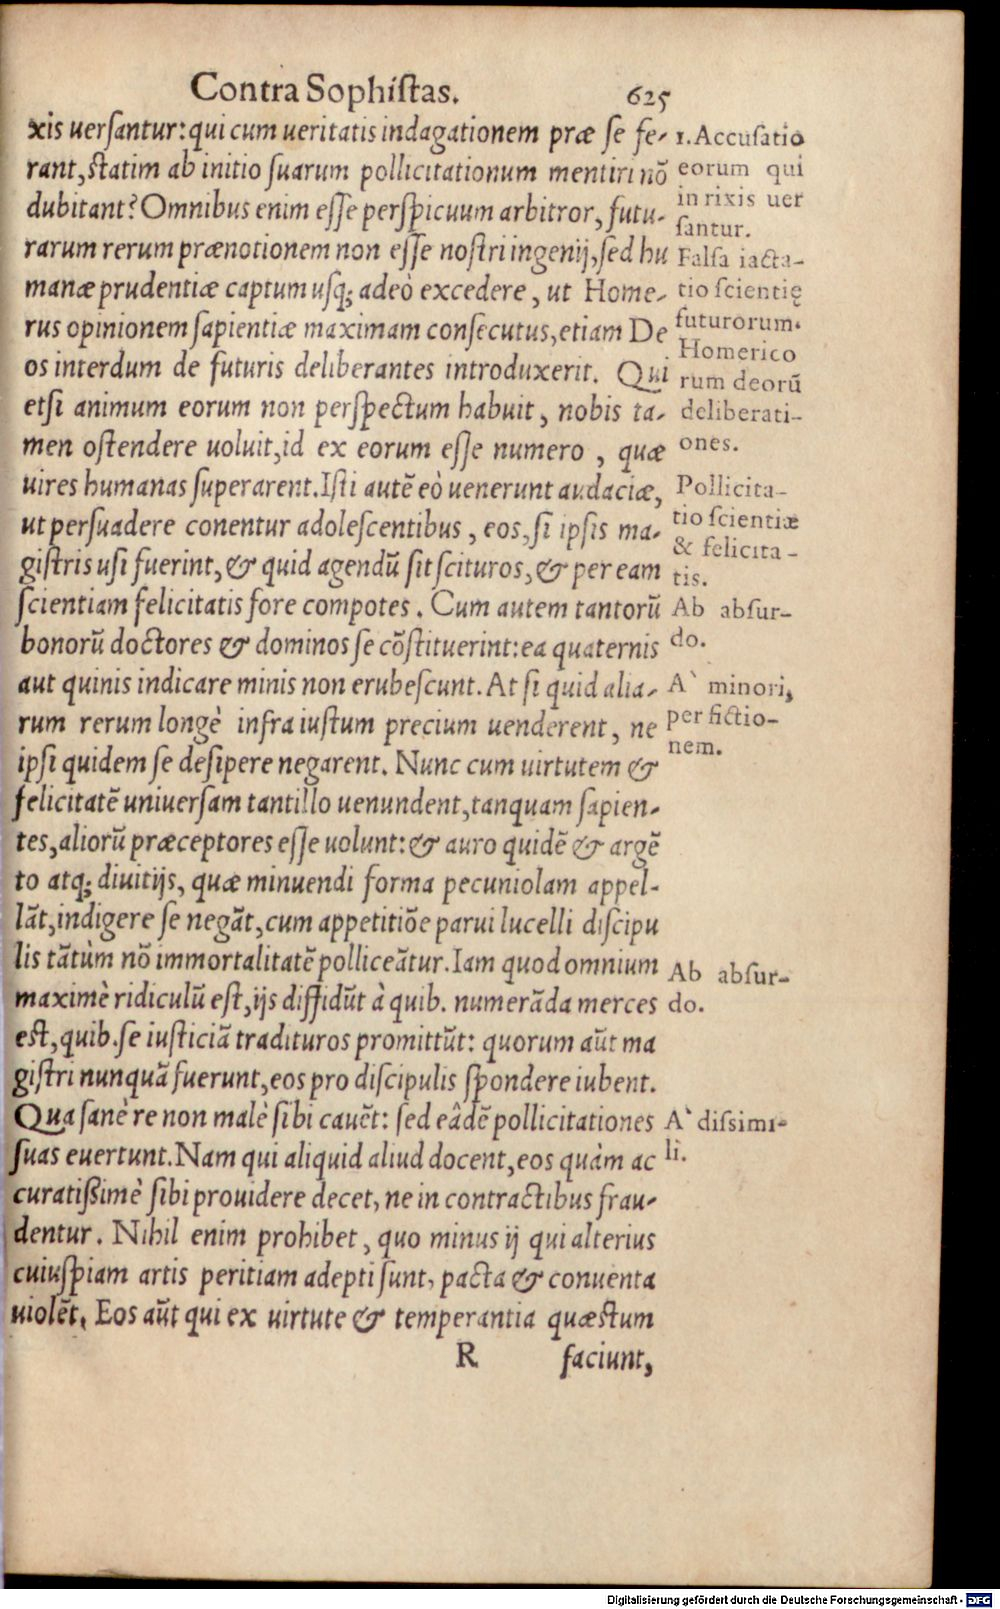 Contra Sophiſtas. 625
xis uerſantur: qui cum ueritatis indagationem præ ſe fe-
rant, ſtatim ab initio ſuarum pollicitationum mentiri nō
dubitant? Omnibus enim eſſe perſpicuum arbitror, futu-
rarum rerum prænotionem non eſſe noſtri ingenij, ſed hu
manæ prudentiæ captum uſq; adeò excedere, ut Home-
rus opinionem ſapientiæ maximam conſecutus, etiam De
os interdum de futuris deliberantes introduxerit. Qui
etſi animum eorum non perſpectum habuit, nobis ta-
men oſtendere uoluit, id ex eorum eſſe numero, quæ
uires humanas ſuperarent. Iſti autē eò uenerunt audaciæ,
ut perſuadere conentur adoleſcentibus, eos, ſi ipſis ma-
giſtris uſi fuerint, & quid agendū ſit ſcituros, & per eam
ſcientiam felicitatis fore compotes. Cum autem tantorū
bonorū doctores & dominos ſe cōſtituerint: ea quaternis
aut quinis indicare minis non erubeſcunt. At ſi quid alia-
rum rerum longè infra iuſtum precium uenderent, ne
ipſi quidem ſe deſipere negarent. Nunc cum uirtutem &
felicitatē uniuerſam tantillo uenundent, tanquam ſapien-
tes, aliorū præceptores eſſe uolunt: & auro quidē & argē
to atq; diuitijs, quæ minuendi forma pecuniolam appel-
lāt, indigere ſe negāt, cum appetitiōe parui lucelli diſcipu
lis tātùm nō immortalitatē polliceātur. Iam quod omnium
maximè ridiculū eſt, ijs diffidūt à quib. numerāda merces
eſt, quib. ſe iuſticiā tradituros promittūt: quorum aūt ma
giſtri nunquā fuerunt, eos pro diſcipulis ſpondere iubent.
Qua ſanè re non malè ſibi cauēt: ſed eâdē pollicitationes
ſuas euertunt. Nam qui aliquid aliud docent, eos quàm ac
curatißimè ſibi prouidere decet, ne in contractibus frau-
dentur. Nihil enim prohibet, quo minus ij qui alterius
cuiuſpiam artis peritiam adepti ſunt, pacta & conuenta
uiolēt. Eos aūt qui ex uirtute & temperantia quæſtum
R faciunt,
1. Accuſatio
eorum qui
in rixis uer
ſantur.
Falſa iacta-
tio ſcientię
futurorum.
Homerico
rum deorū
deliberati-
ones.
Pollicita-
tio ſcientiæ
& felicita-
tis.
Ab abſur-
do.
A` minori,
per fictio-
nem.
Ab abſur-
do.
A` diſsimi-
li.
Digitalisierung gefördert durch die Deutsche Forschungsgemeinschaft - DFG